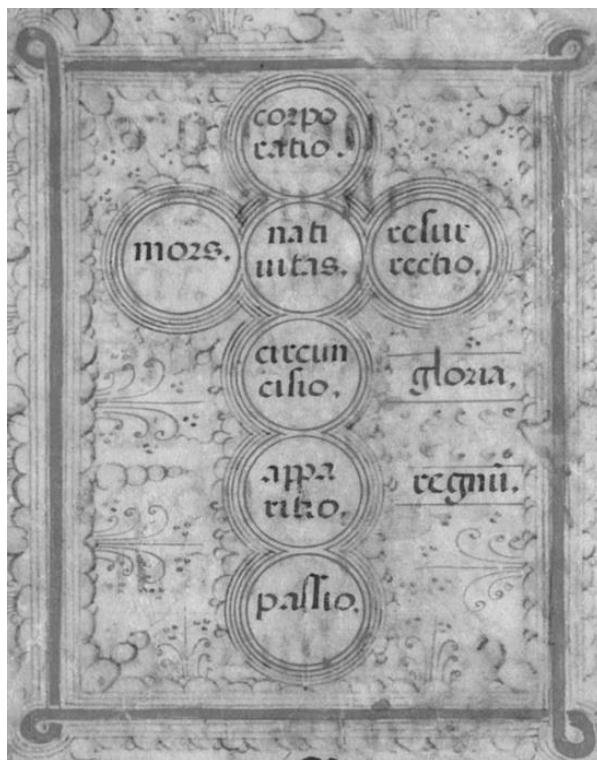 corpo
ratio.
mors.
nati
uitas.
resur
rectio.
circun
cisio.
gloria.
appa
ritio.
regnũ.
passio.